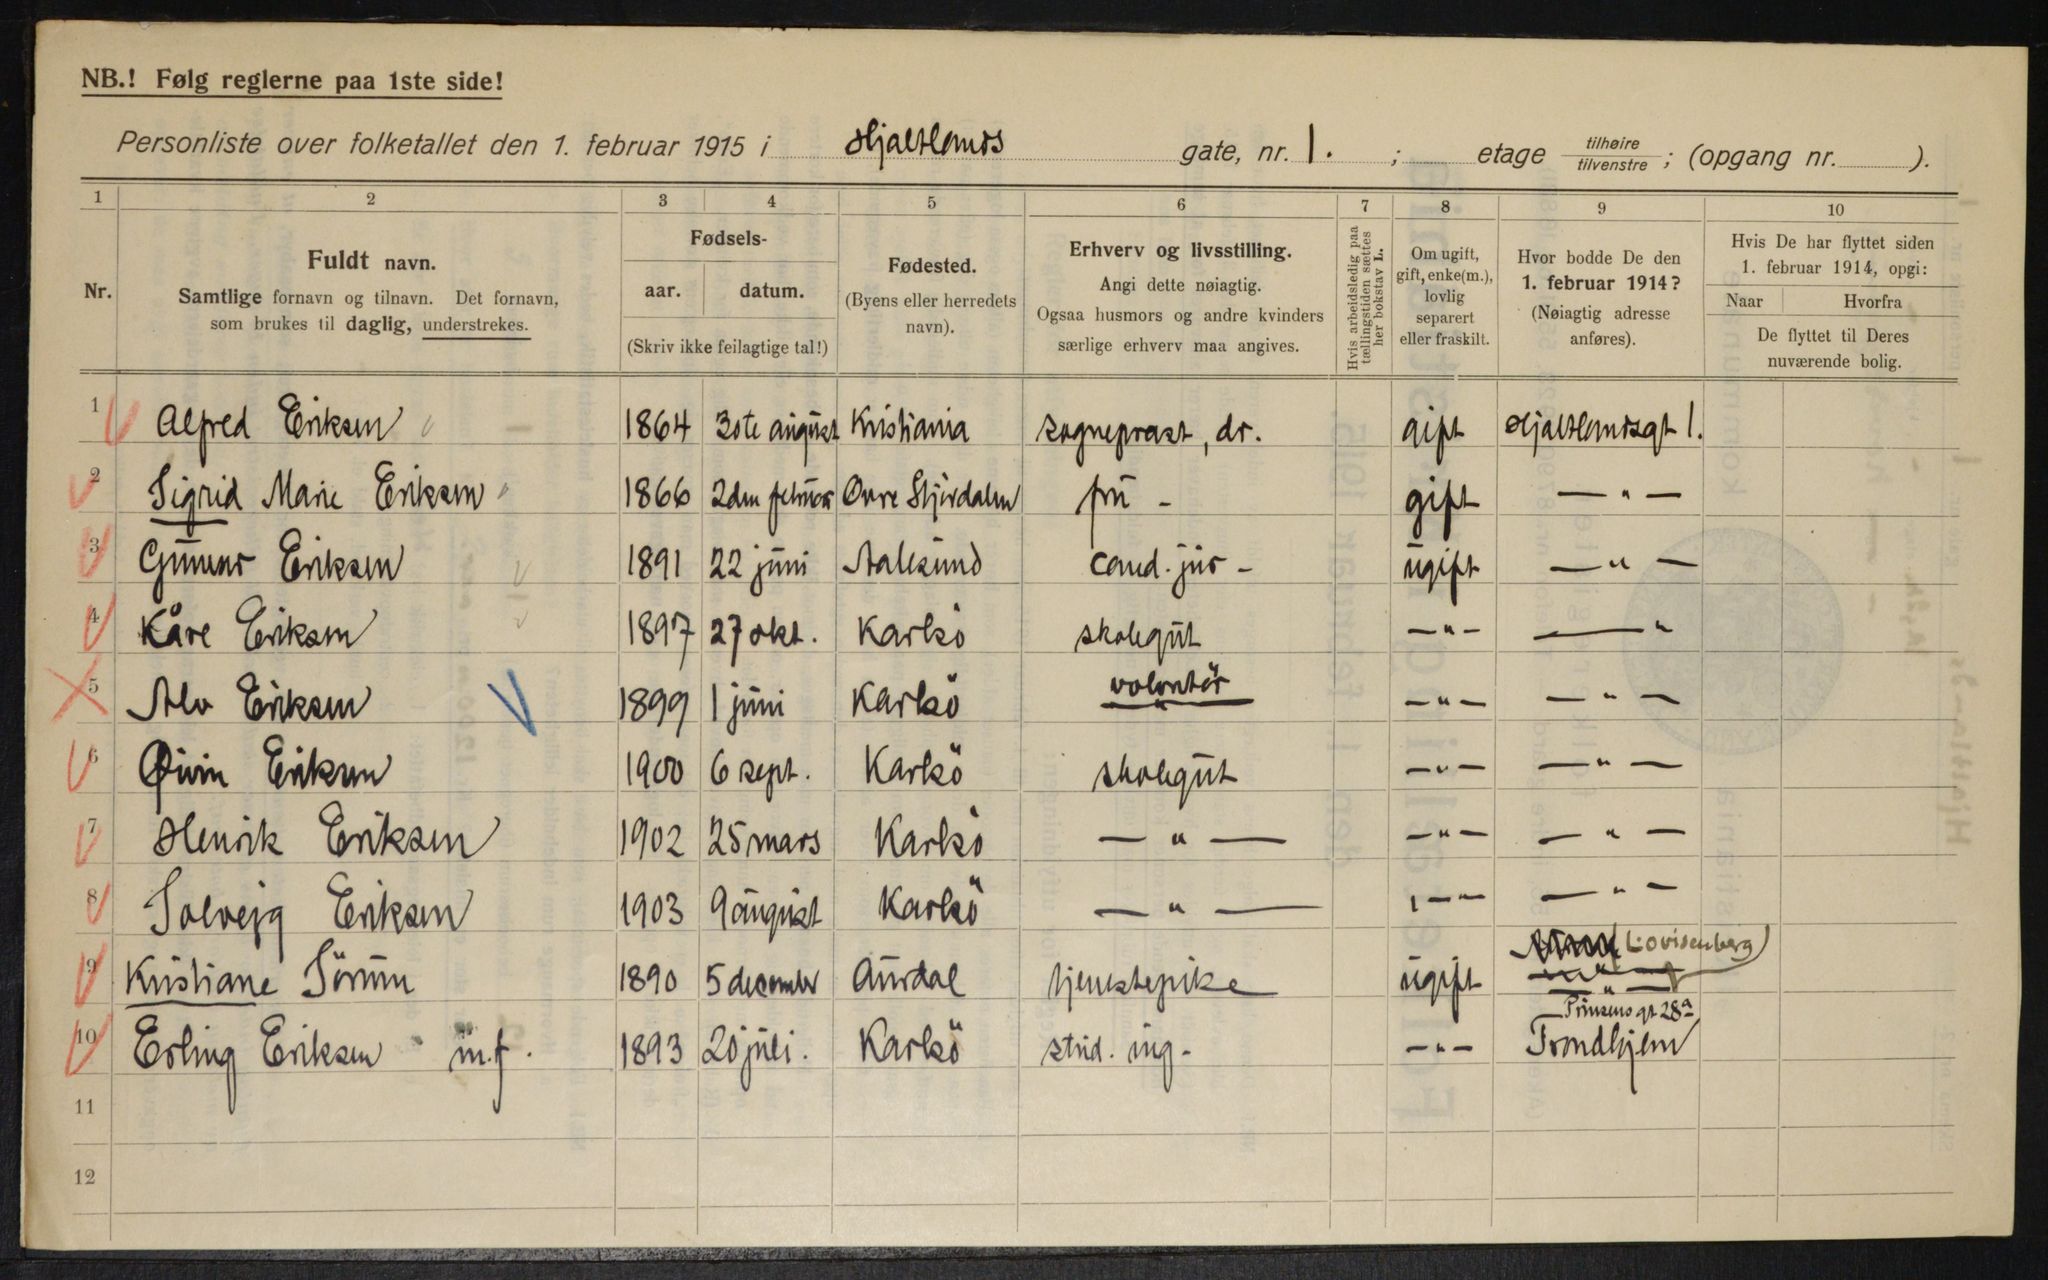 NB.! Følg reglerne paa 1ste side!
Personliste over folketallet den 1. februar 1915 i Hjaltlands gate, nr. 1. ; etage tilhøire tilvenstre ; (opgang nr. ).
1 2 3 4 5 6 7 8 9 10
Nr.
Fuldt navn.
Samtlige fornavn og tilnavn. Det fornavn,
som brukes til daglig, understrekes.
Fødsels-
aar. datum.
(Skriv ikke feilagtige tal!)
Fødested.
(Byens eller herredets
navn).
Erhverv og livsstilling.
Angi dette nøiagtig.
Ogsaa husmors og andre kvinders
særlige erhverv maa angives.
Hvis arbeidsledig paa
tællingstiden sættes
her bokstav L.
Om ugift,
gift, enke(m.),
lovlig
separert
eller fraskilt.
Hvor bodde De den
1. februar 1914?
(Nøiagtig adresse
anføres).
Hvis De har flyttet siden
1. februar 1914, opgi:
Naar Hvorfra
De flyttet til Deres
nuværende bolig.
1 Alfred Eriksen 1864 30te august Kristiania sogneprast, dr. gift Hjaltlandsgt 1.
2 Sigrid Marie Eriksen 1866 2den februar Øvre Stjørdalen fru - gift — " —
3 Gunnar Eriksen 1891 22 juni Aalesund cand. jur - ugift — " —
4 Kåre Eriksen 1897 27 okt. Karlsö skolegut — " — — "
5 Alv Eriksen 1899 1 juni Karlsö volontör — " — — " —
6 Øivin Eriksen 1900 6 sept. Karlsö skolegut — " — — " —
7 Henrik Eriksen 1902 25 mars Karlsö — " — — " — — " —
8 Solvejg Eriksen 1903 9 august Karlsö — " — — " — — " —
9 Kristiane Sörum 1890 5 december Aurdal tjenstepike ugift Lovisenberg
10 Erling Eriksen m.f. 1893 20 juli. Karlsö stud. ing - — " — Prinsens gt 28a
Trondhjem
11
12